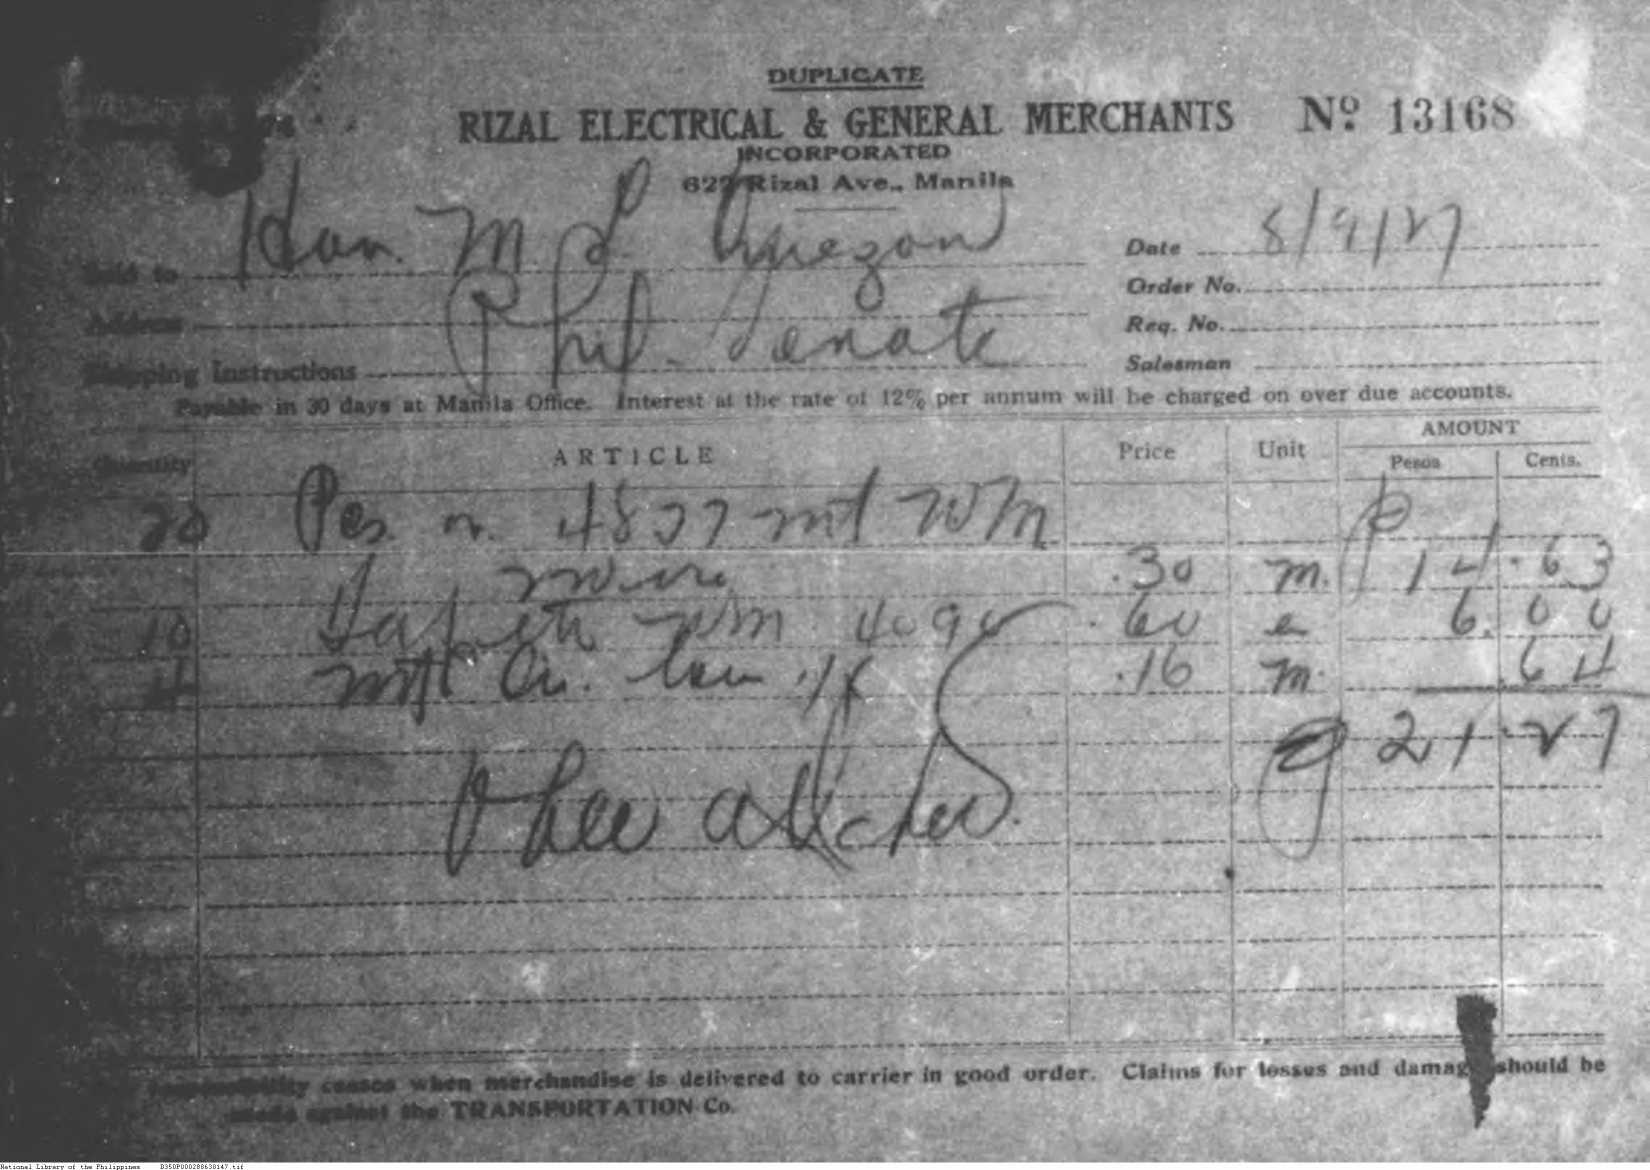 DUPLICATE
RIZAL ELECTRICAL & GENERAL MERCHANTS Nº 13168
INCORPORATED
627 Rizal Ave., Manila
Sold to Hon. M. L. Quezon
Date 8/9/27
Order No.
Address Phil. Senate
Req. No.
Shipping Instructions
Salesman
Payable in 30 days at Manila Office. Interest at the rate of 12% per annum will be charged on over due accounts.
Quantity ARTICLE Price Unit AMOUNT
Pesos Cents.
20 Pcs. 48.77 mt WM
.30 m. ₱14.63
10 WM .60 e 6.00
4 .16 m. .64
21.27
responsibility ceases when merchandise is delivered to carrier in good order. Claims for losses and damage should be
made against the TRANSPORTATION Co.
National Library of the Philippines